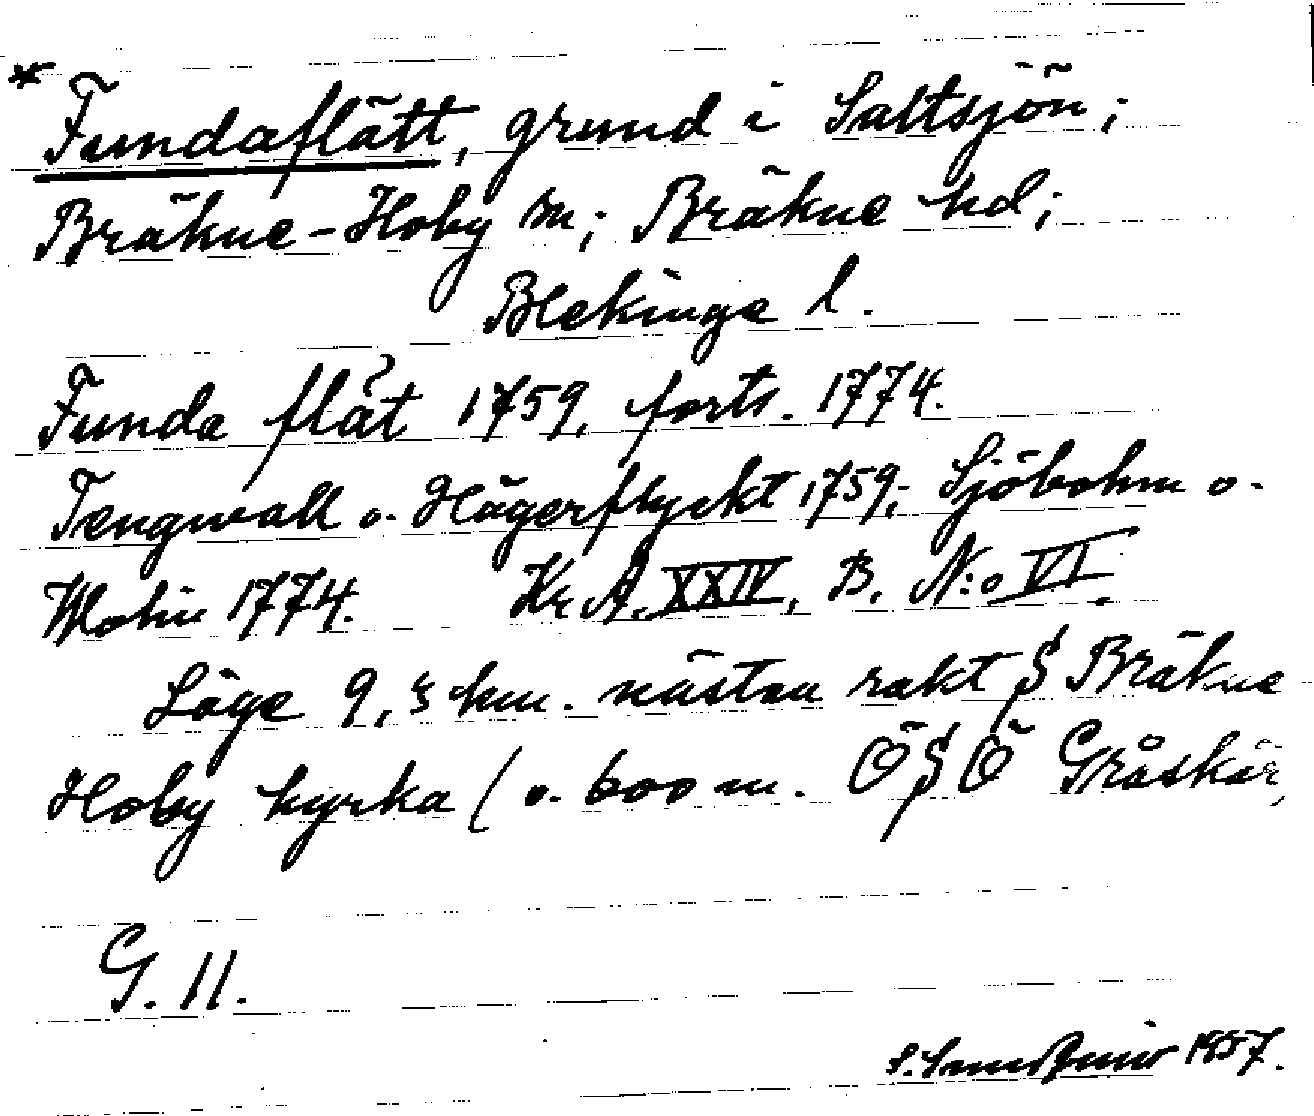 * Fundaflätt, grund i Saltsjön;
Bräkne-Hoby sn; Bräkne hd;
Blekinge l.
Funda flåt 1759, forts. 1774.
Tengwall o. Hägerflyckt 1759; Sjöbohm o.
Wohin 1774. Kr. A. XXIV, B. N:o VI.
Läge 9,5 km. nästan rakt S Bräkne
Hoby kyrka (o. 600 m. ÖSÖ Gråskär,
G. 11.
S. 1957.